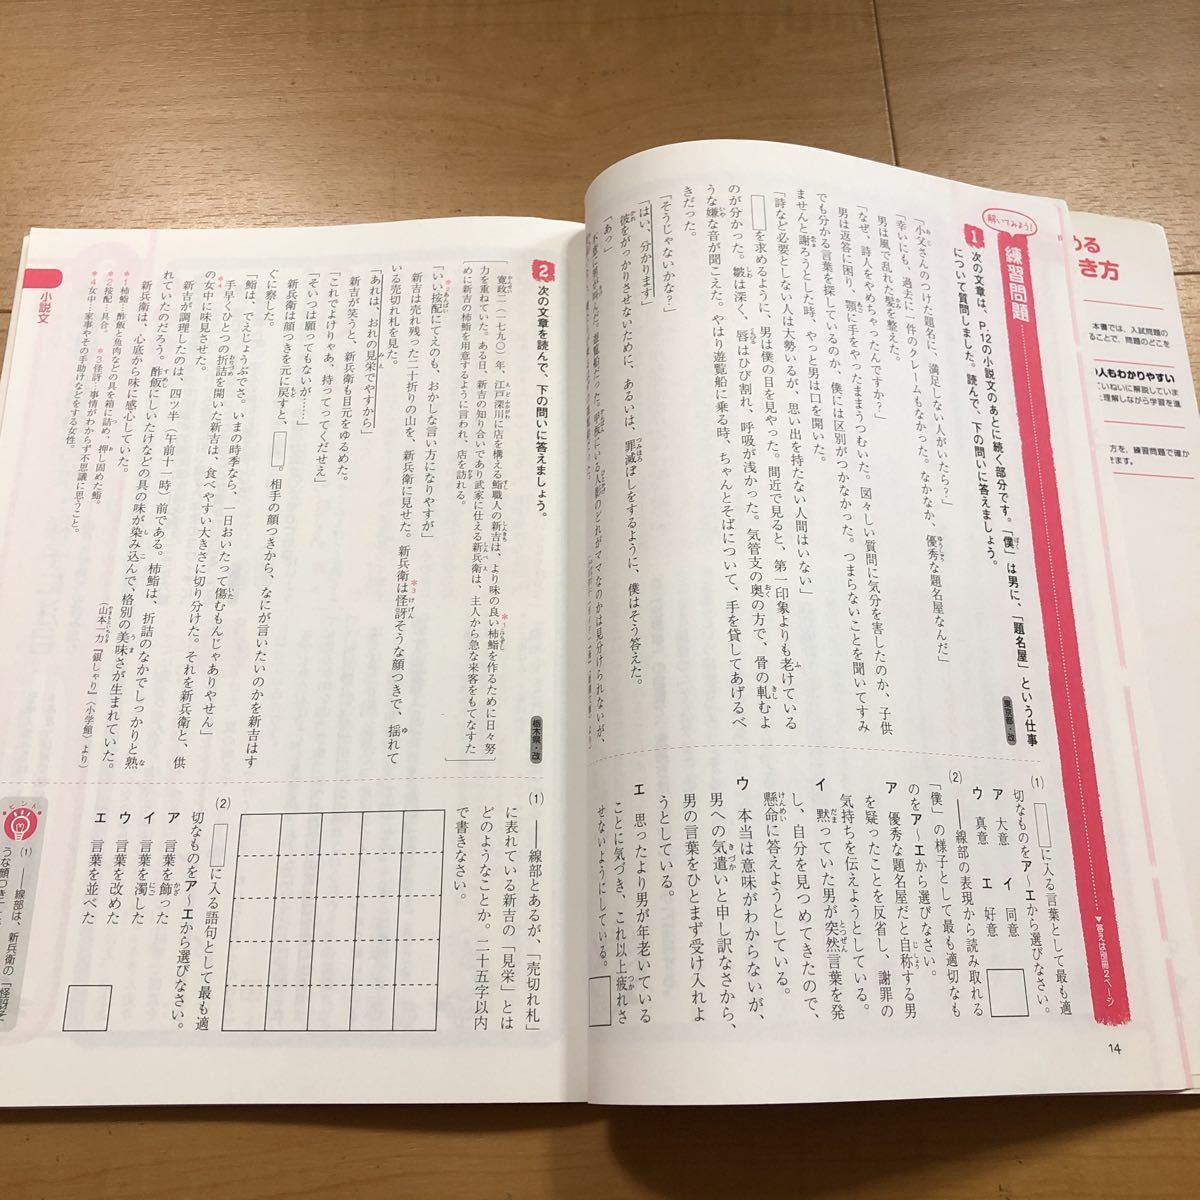 解いてみよう！
練習問題
▼答えは別冊2ページ
1 次の文章は、P.12の小説文のあとに続く部分です。「僕」は男に、「題名屋」という仕事
について質問しました。読んで、下の問いに答えましょう。
東京都・改
「小父さんのつけた題名に、満足しない人がいたら？」
「幸いにも、過去に一件のクレームもなかった。なかなか、優秀な題名屋なんだ」
男は風で乱れた髪を整えた。
「なぜ、詩人をやめちゃったんですか？」
男は返答に困り、顎に手をやったままうつむいた。図々しい質問に気分を害したのか、子供
でも分かる言葉を探しているのか、僕には区別がつかなかった。つまらないことを聞いてすみ
ませんと謝ろうとした時、やっと男は口を開いた。
「詩など必要としない人は大勢いるが、思い出を持たない人間はいない」
を求めるように、男は僕の目を見やった。間近で見ると、第一印象よりも老けている
のが分かった。皺は深く、唇はひび割れ、呼吸が浅かった。気管支の奥の方で、骨の軋むよ
うな嫌な音が聞こえた。やはり遊覧船に乗る時、ちゃんとそばについて、手を貸してあげるべ
きだった。
「そうじゃないかな？」
「はい、分かります」
彼をがっかりさせないために、あるいは、罪滅ぼしをするように、僕はそう答えた。
「あっ」
(1) に入る言葉として最も適
切なものをア〜エから選びなさい。
ア 大意　イ 同意
ウ 真意　エ 好意
(2) ――線部の表現から読み取れる
「僕」の様子として最も適切なも
のをア〜エから選びなさい。
ア 優秀な題名屋だと自称する男
を疑ったことを反省し、謝罪の
気持ちを伝えようとしている。
イ 黙っていた男が突然言葉を発
し、自分を見つめてきたので、
懸命に答えようとしている。
ウ 本当は意味がわからないが、
男への気遣いと申し訳なさから、
男の言葉をひとまず受け入れよ
うとしている。
エ 思ったより男が年老いている
ことに気づき、これ以上疲れさ
せないようにしている。
14
2 次の文章を読んで、下の問いに答えましょう。
栃木県・改
寛政二（一七九〇）年、江戸深川に店を構える鮨職人の新吉は、より味の良い柿鮨を作るために日々努
力を重ねていた。ある日、新吉の知り合いであり武家に仕える新兵衛は、主人から急な来客をもてなすた
めに新吉の柿鮨を用意するように言われ、店を訪れる。
「いい按配にてえのも、おかしな言い方になりやすが」
新吉は売れ残った二十折りの山を、新兵衛に見せた。新兵衛は怪訝そうな顔つきで、揺れて
いる売切れ札を見た。
「あれは、おれの見栄でやすから」
新吉が笑うと、新兵衛も目元をゆるめた。
「これでよけりゃあ、持ってってくだせえ」
「そいつは願ってもないが……」
新兵衛は顔つきを元に戻すと、　。相手の顔つきから、なにが言いたいのかを新吉はす
ぐに察した。
「鮨は、でえじょうぶでさ。いまの時季なら、一日おいたって傷むもんじゃありやせん」
手早くひとつの折詰を開いた新吉は、食べやすい大きさに切り分けた。それを新兵衛と、供
の女中に味見させた。
新吉が調理したのは、四ツ半（午前十一時）前である。柿鮨は、折詰のなかでしっかりと熟
れていたのだろう。酢飯にしいたけなどの具の味が染み込んで、格別の美味さが生まれていた。
新兵衛は、心底から味に感心していた。
（山本一力『銀しゃり』〈小学館〉より）
＊1柿鮨…酢飯と魚肉などの具を箱に詰め、押し固めた鮨。
＊2按配…具合。　＊3怪訝…事情がわからず不思議に思うこと。
＊4女中…家事やその手助けなどをする女性。
(1) ――線部とあるが、「売切れ札」
に表れている新吉の「見栄」とは
どのようなことか。二十五字以内
で書きなさい。
(2) に入る語句として最も適
切なものをア〜エから選びなさい。
ア 言葉を飾った
イ 言葉を濁した
ウ 言葉を改めた
エ 言葉を並べた
ヒント
(1) ――線部は、新兵衛の「怪訝そ
うな顔つき
小説文
める
き方
本書では、入試問題の
ることで、問題のどこを
の人もわかりやすい
ていねいに解説していま
と理解しながら学習を進
方を、練習問題で確か
きます。